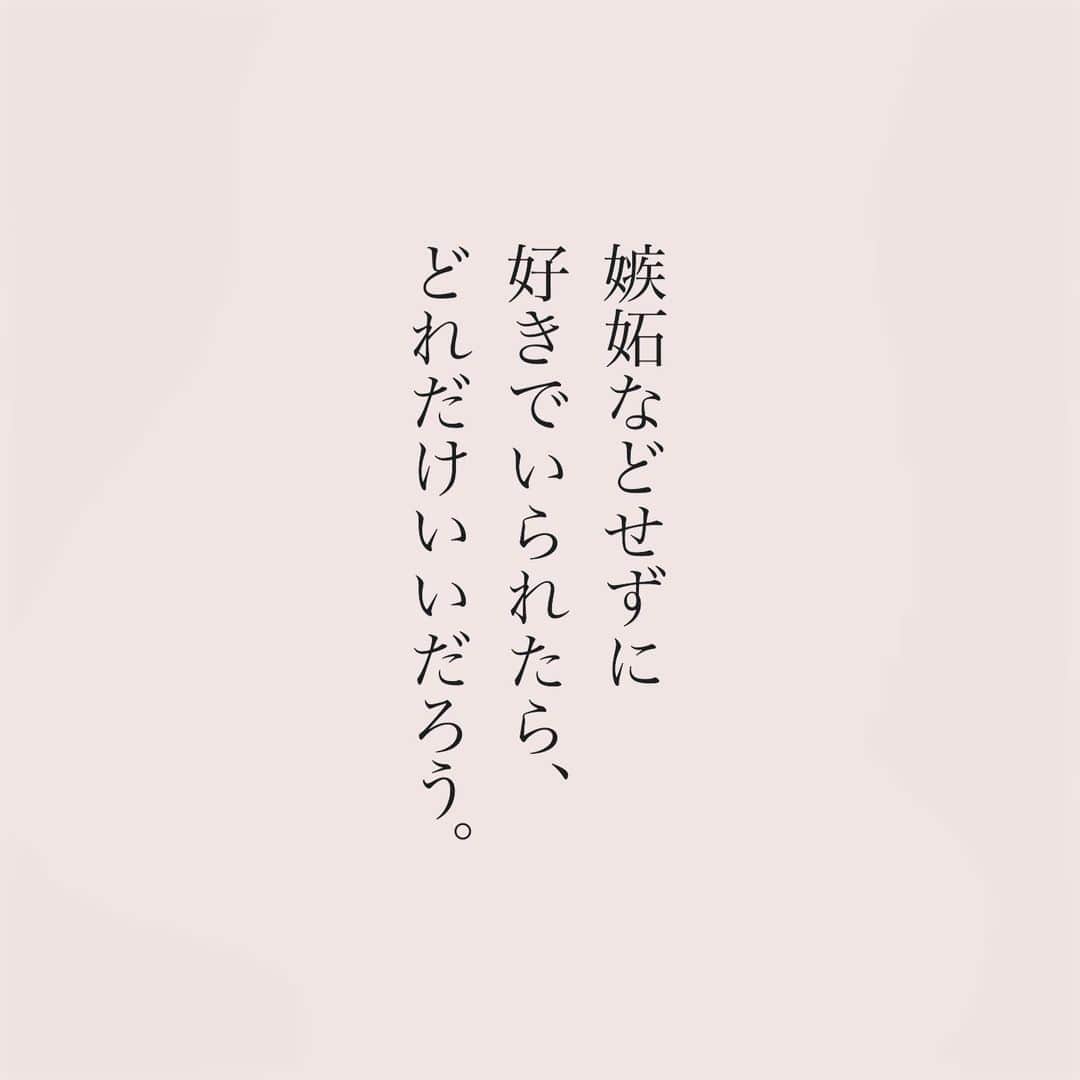 嫉妬などせずに
好きでいられたら、
どれだけいいだろう。